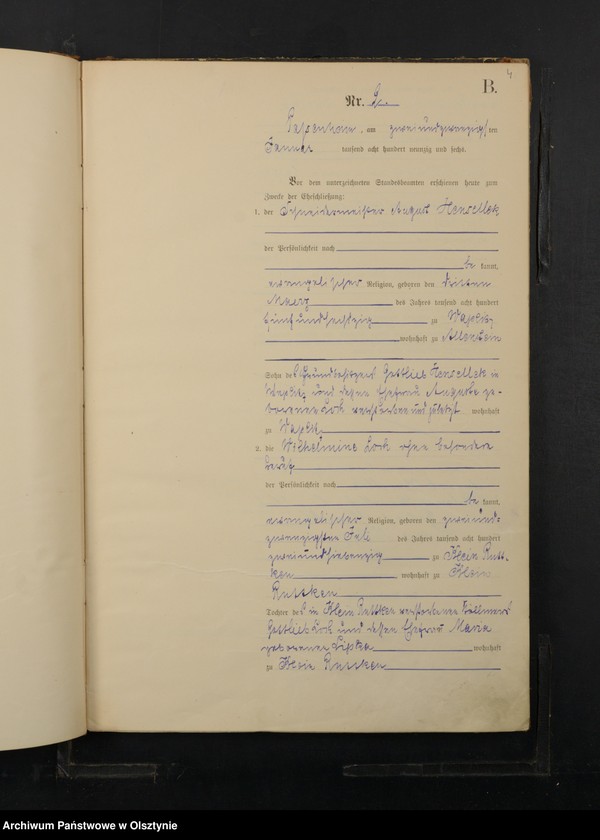 4
B.
Nr. 2.
Passenheim, am zweiundzwanzig ten
Januar tausend acht hundert neunzig und sechs.
Vor dem unterzeichneten Standesbeamten erschienen heute zum
Zwecke der Eheschließung:
1. der Schneidermeister August Hensellek
der Persönlichkeit nach
be kannt,
evangelischer Religion, geboren den
Maerz des Jahres tausend acht hundert
fünfundsechszig zu Waplitz,
wohnhaft zu Allenstein
Sohn des Grundbesitzers Gottlieb Hensellek in
Waplitz, und dessen Ehefrau Auguste ge-
borenen Lork verstorben und zuletzt wohnhaft
zu Waplitz
2. die Wilhelmine Lork ohne besonderen
Beruf
der Persönlichkeit nach
be kannt,
evangelischer Religion, geboren den zweiund-
zwanzigsten Juli des Jahres tausend acht hundert
zweiundsiebenzig zu Klein Rutt-
ken wohnhaft zu Klein
Ruttken
Tochter des in Klein Ruttken verstorbenen Köllmers
Gottlieb Lork und dessen Ehefrau Maria
geborenen Lipka wohnhaft
zu Klein Ruttken
Archiwum Państwowe w Olsztynie